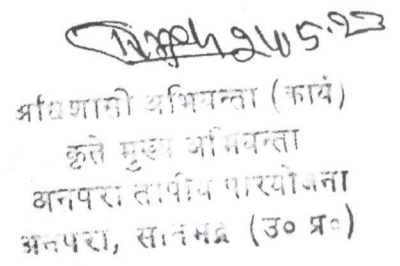 24.5.23
अधिशासी अभियन्ता (कार्य)
कृते मुख्य अभियन्ता
अनपरा तापीय परियोजना
अनपरा, सोनभद्र (उ० प्र०)